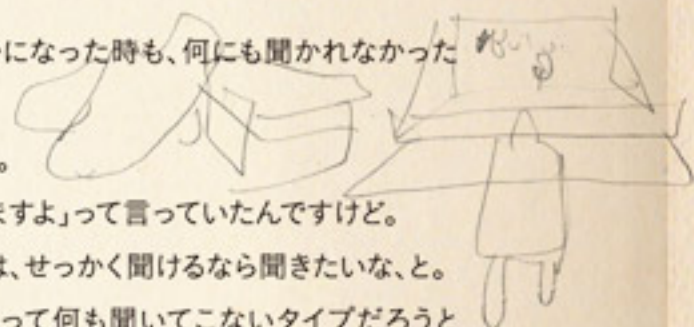 になった時も、何にも聞かれなかった
。
ますよ」って言っていたんですけど。
は、せっかく聞けるなら聞きたいな、と。
って何も聞いてこないタイプだろうと